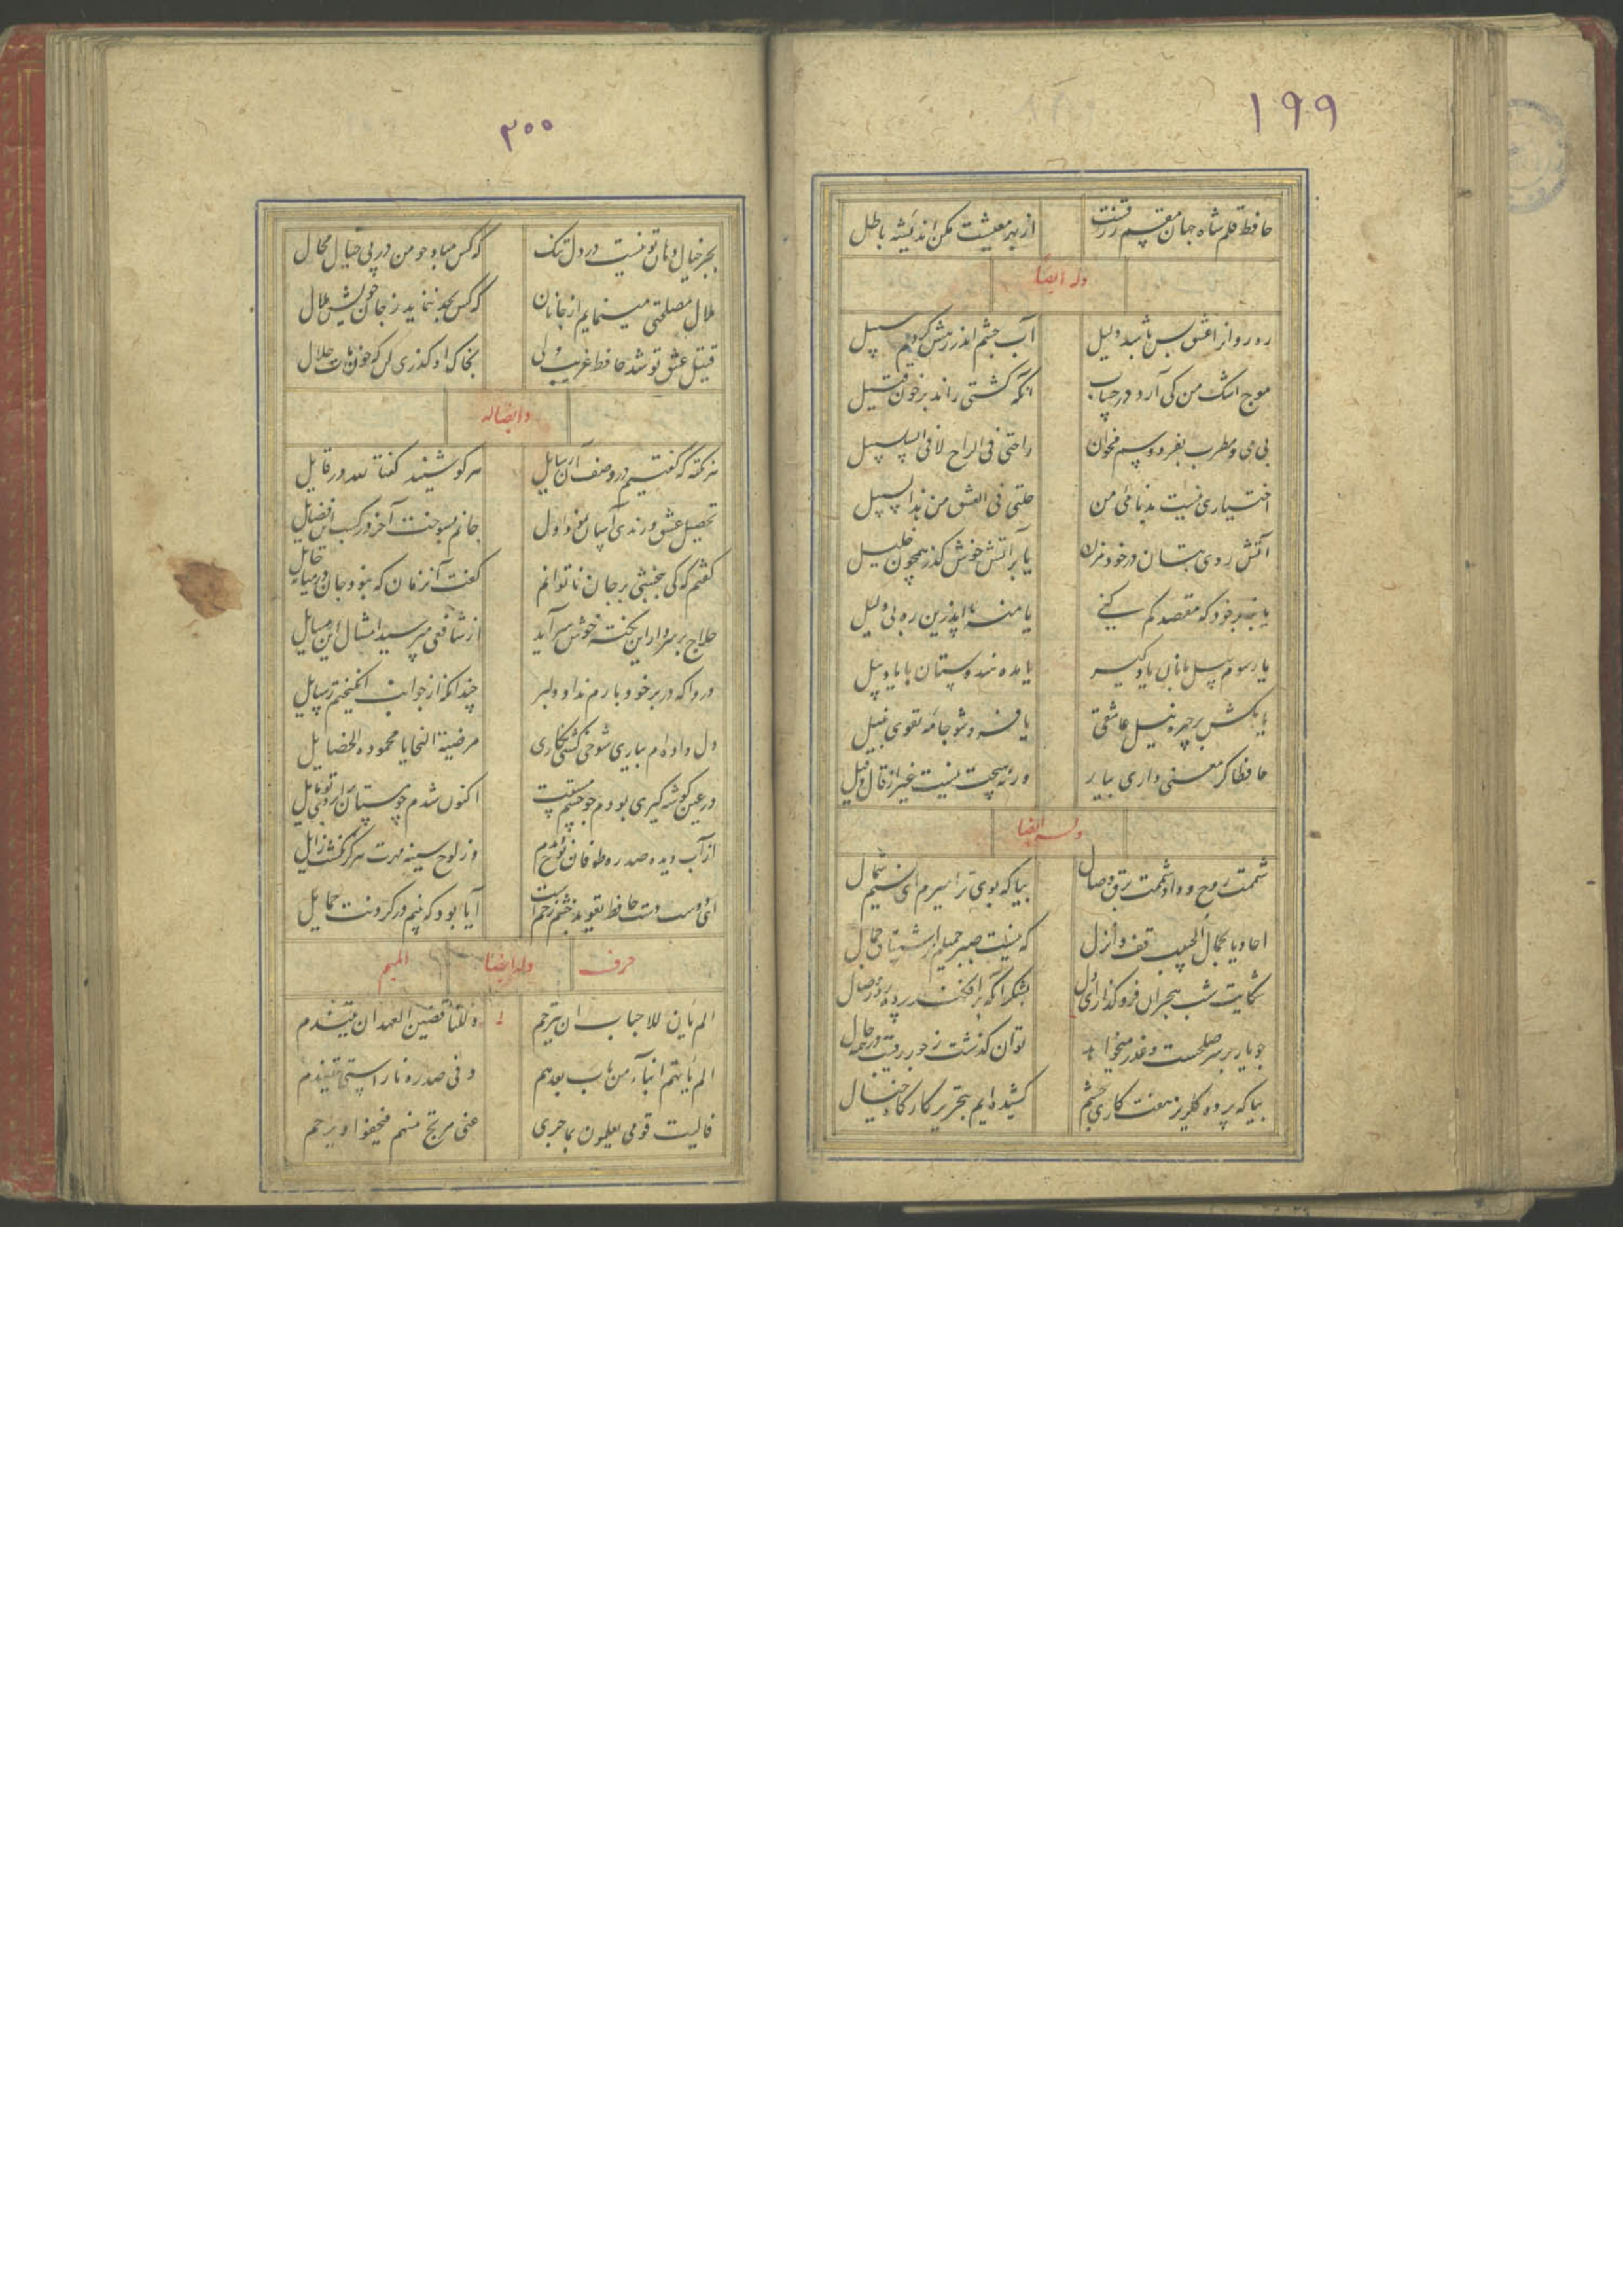 ۱۹۹
حافظ قلم شاه جهان مقسم رزقست از بهر معیشت مکن اندیشه باطل
وله ایضا
ره روانرا عشق بس باشد دلیل آب چشم اندر رهش کردم سبیل
موج اشک من کی آرد در حساب انکه کشتی راند بر خون قتیل
بی می و مطرب بفردوسم مخوان راحتی فی الراح لا فی السلسبیل
اختیاری نیست بدنامی من ضلنی فی العشق من یهدی السبیل
آتش روی بتان در خود مزن یا بر آتش خوش گذر همچون خلیل
یا بنه بر خود که مقصد کم کنی یا منه پا اندرین ره بی دلیل
یا رسوم پیل بانان یاد کیر یا مده هندوستان با یاد پیل
یا بکش بر چهره نیل عاشقی یا فرو شو جامه تقوی به نیل
حافظا کر معنی داری بیار ورنه هیچت نیست غیر از قال و قیل
وله ایضا
شممت روح وداد و شمت برق وصال بیا که بوی ترا میرم ای نسیم شمال
احادیا بجمال الحبیب قف وانزل که نیست صبر جمیلم از اشتیاق جمال
شکایت شب هجران فرو گذار ای دل بشکر آنکه برافکند پرده روز وصال
چو یار بر سر صلحست و عذر میخواهد توان گذشت ز جور رقیب در همه حال
بیا که پرده گلریز هفت کاری چشم کشیده ایم بتحریر کارگاه خیال
۲۰۰
بجز خیال دهان تو نیست در دل تنک که کس مباد چو من در پی خیال محال
ملال مصلحتی مینمایم از جانان که کس بجد ننماید ز جان خویش ملال
قتیل عشق تو شد حافظ غریب ولی بخاک او گذری کن که خون مات حلال
و ایضا له
هر نکته که گفتم در وصف آن شمایل هر کو شنید گفتا لله در قایل
تحصیل عشق و رندی آسان نمود اول جانم بسوخت آخر در کسب این فضایل
گفتم که کی ببخشی بر جان ناتوانم گفت آنزمان که نبود جان در میانه حایل
حلاج بر سر دار این نکته خوش سراید از شافعی مپرسید امثال این مسایل
دردا که در بر خود بارم نداد دلبر چندانکه از جوانب انگیختم رسایل
دل داده ام بیاری شوخی کشی نگاری مرضیة السجایا محمودة الخصایل
در عین کوشه گیری بودم چو چشم مستت اکنون شدم چو مستان بر ابروی تو مایل
از آب دیده صد ره طوفان نوح دیدم وز لوح سینه مهرت هرگز نگشت زایل
ای دوست دست حافظ تعویذ چشم زخم است آیا بود که بینم در کردنت حمایل
حرف وله ایضا المیم
الم یأن للاحباب ان یترحم و للناقضین العهد ان یتندم
الم یأتهم انباء من بات بعدهم و فی صدره نار
فالیت قومی یعلمون بما جری علی مرتج منهم فیعفوا و یرحم